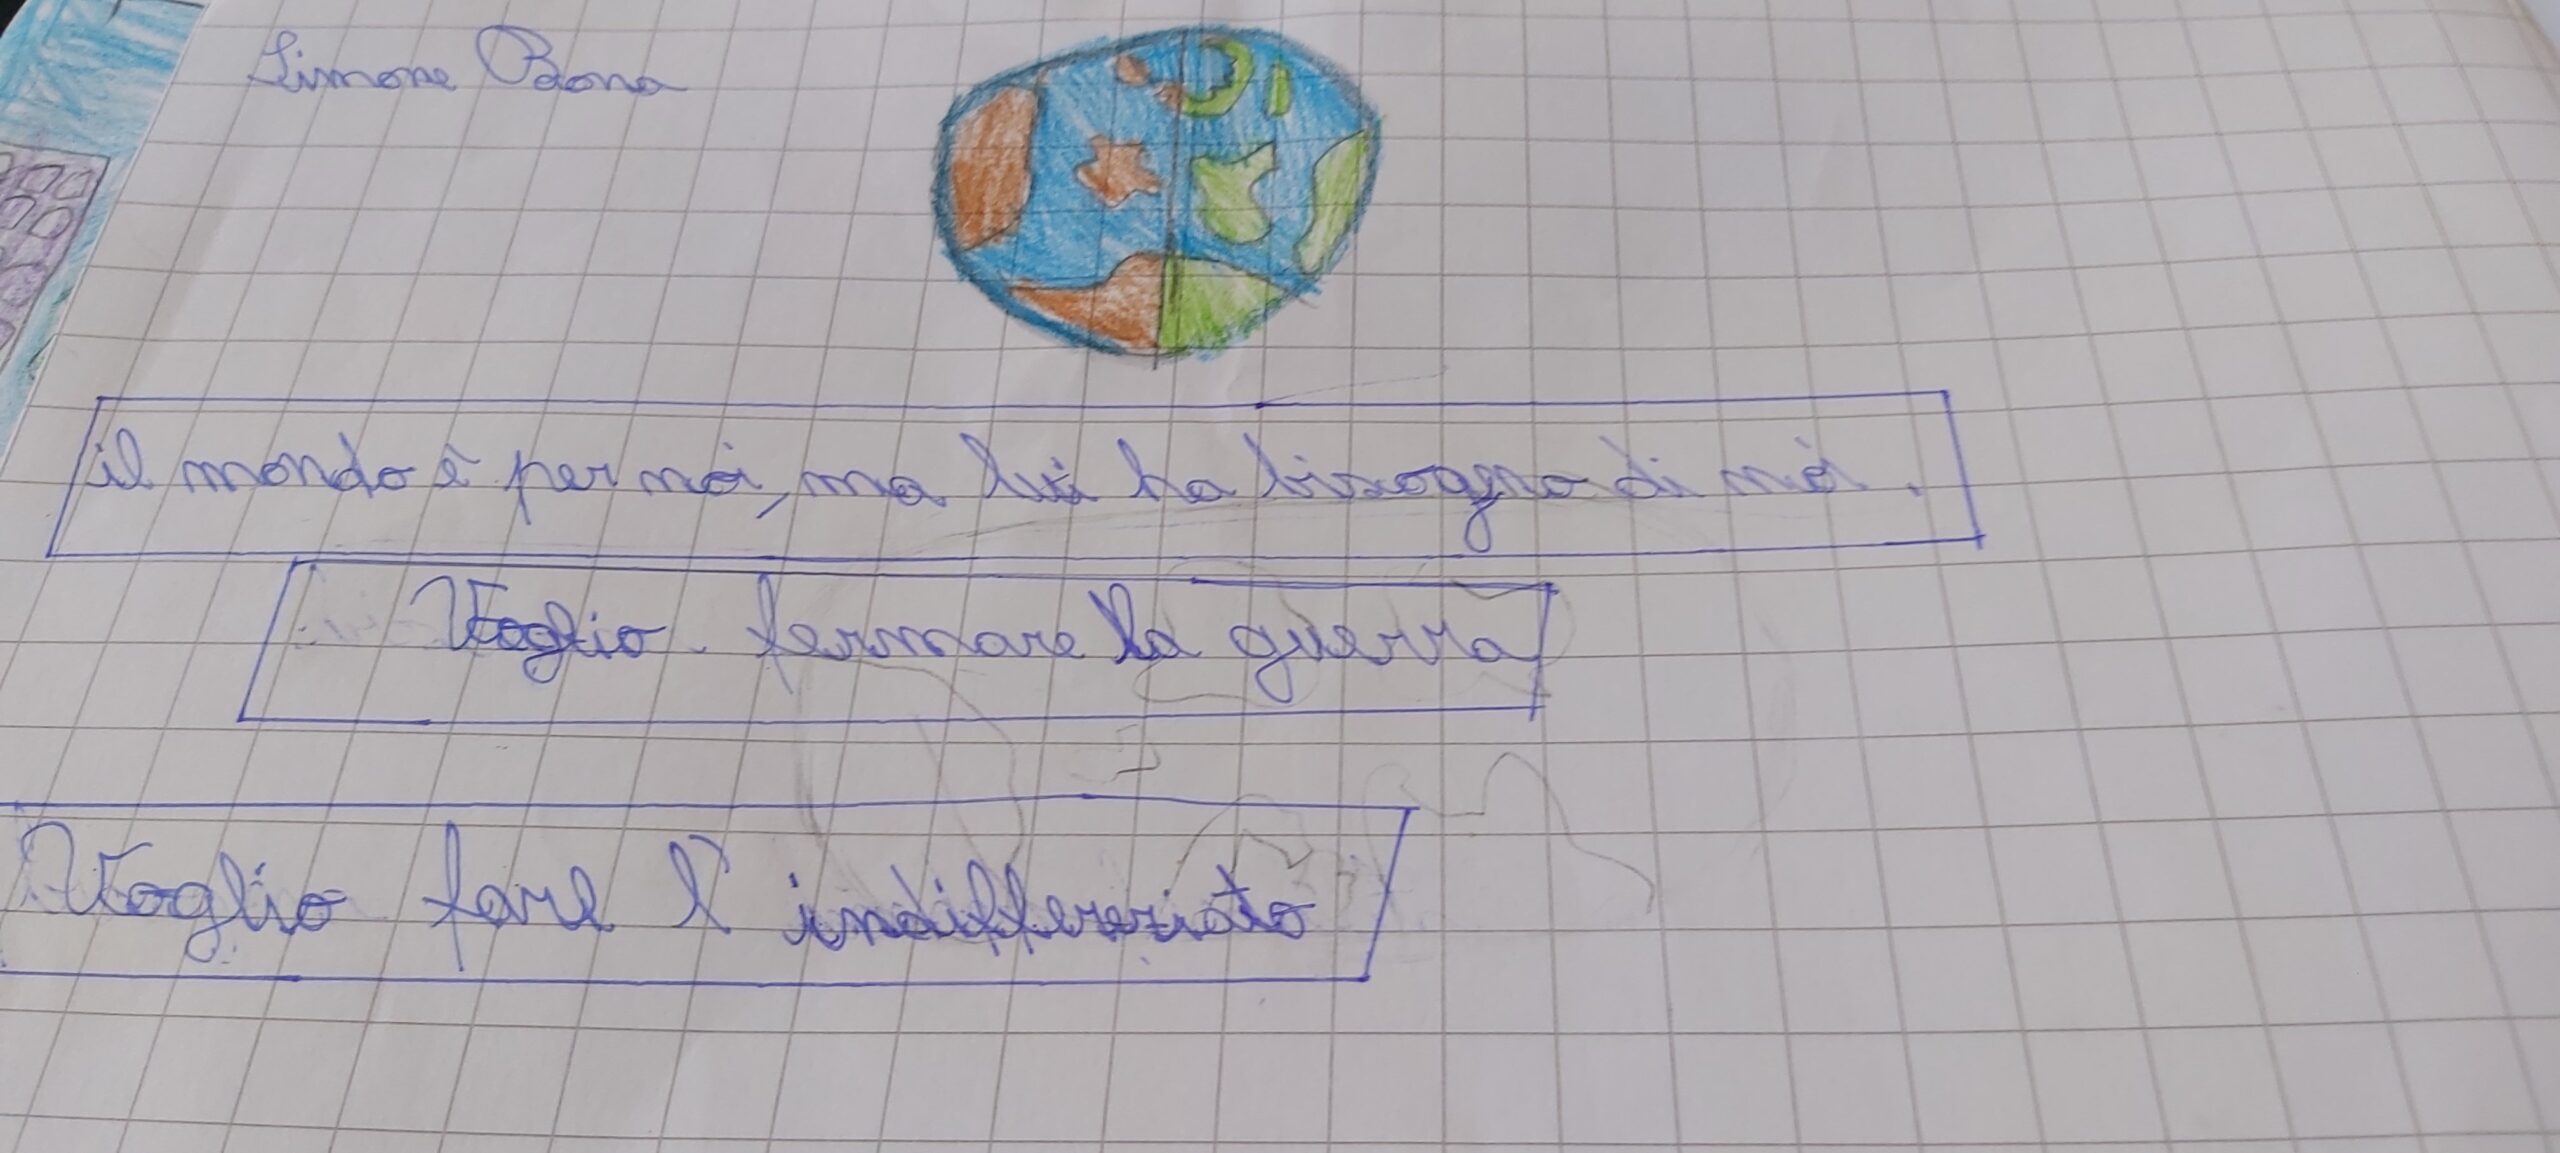 Simone Paona
il mondo è per noi, ma lui ha bisogno di noi.
Voglio fermare la guerra
Voglio fare l'indiffereziato